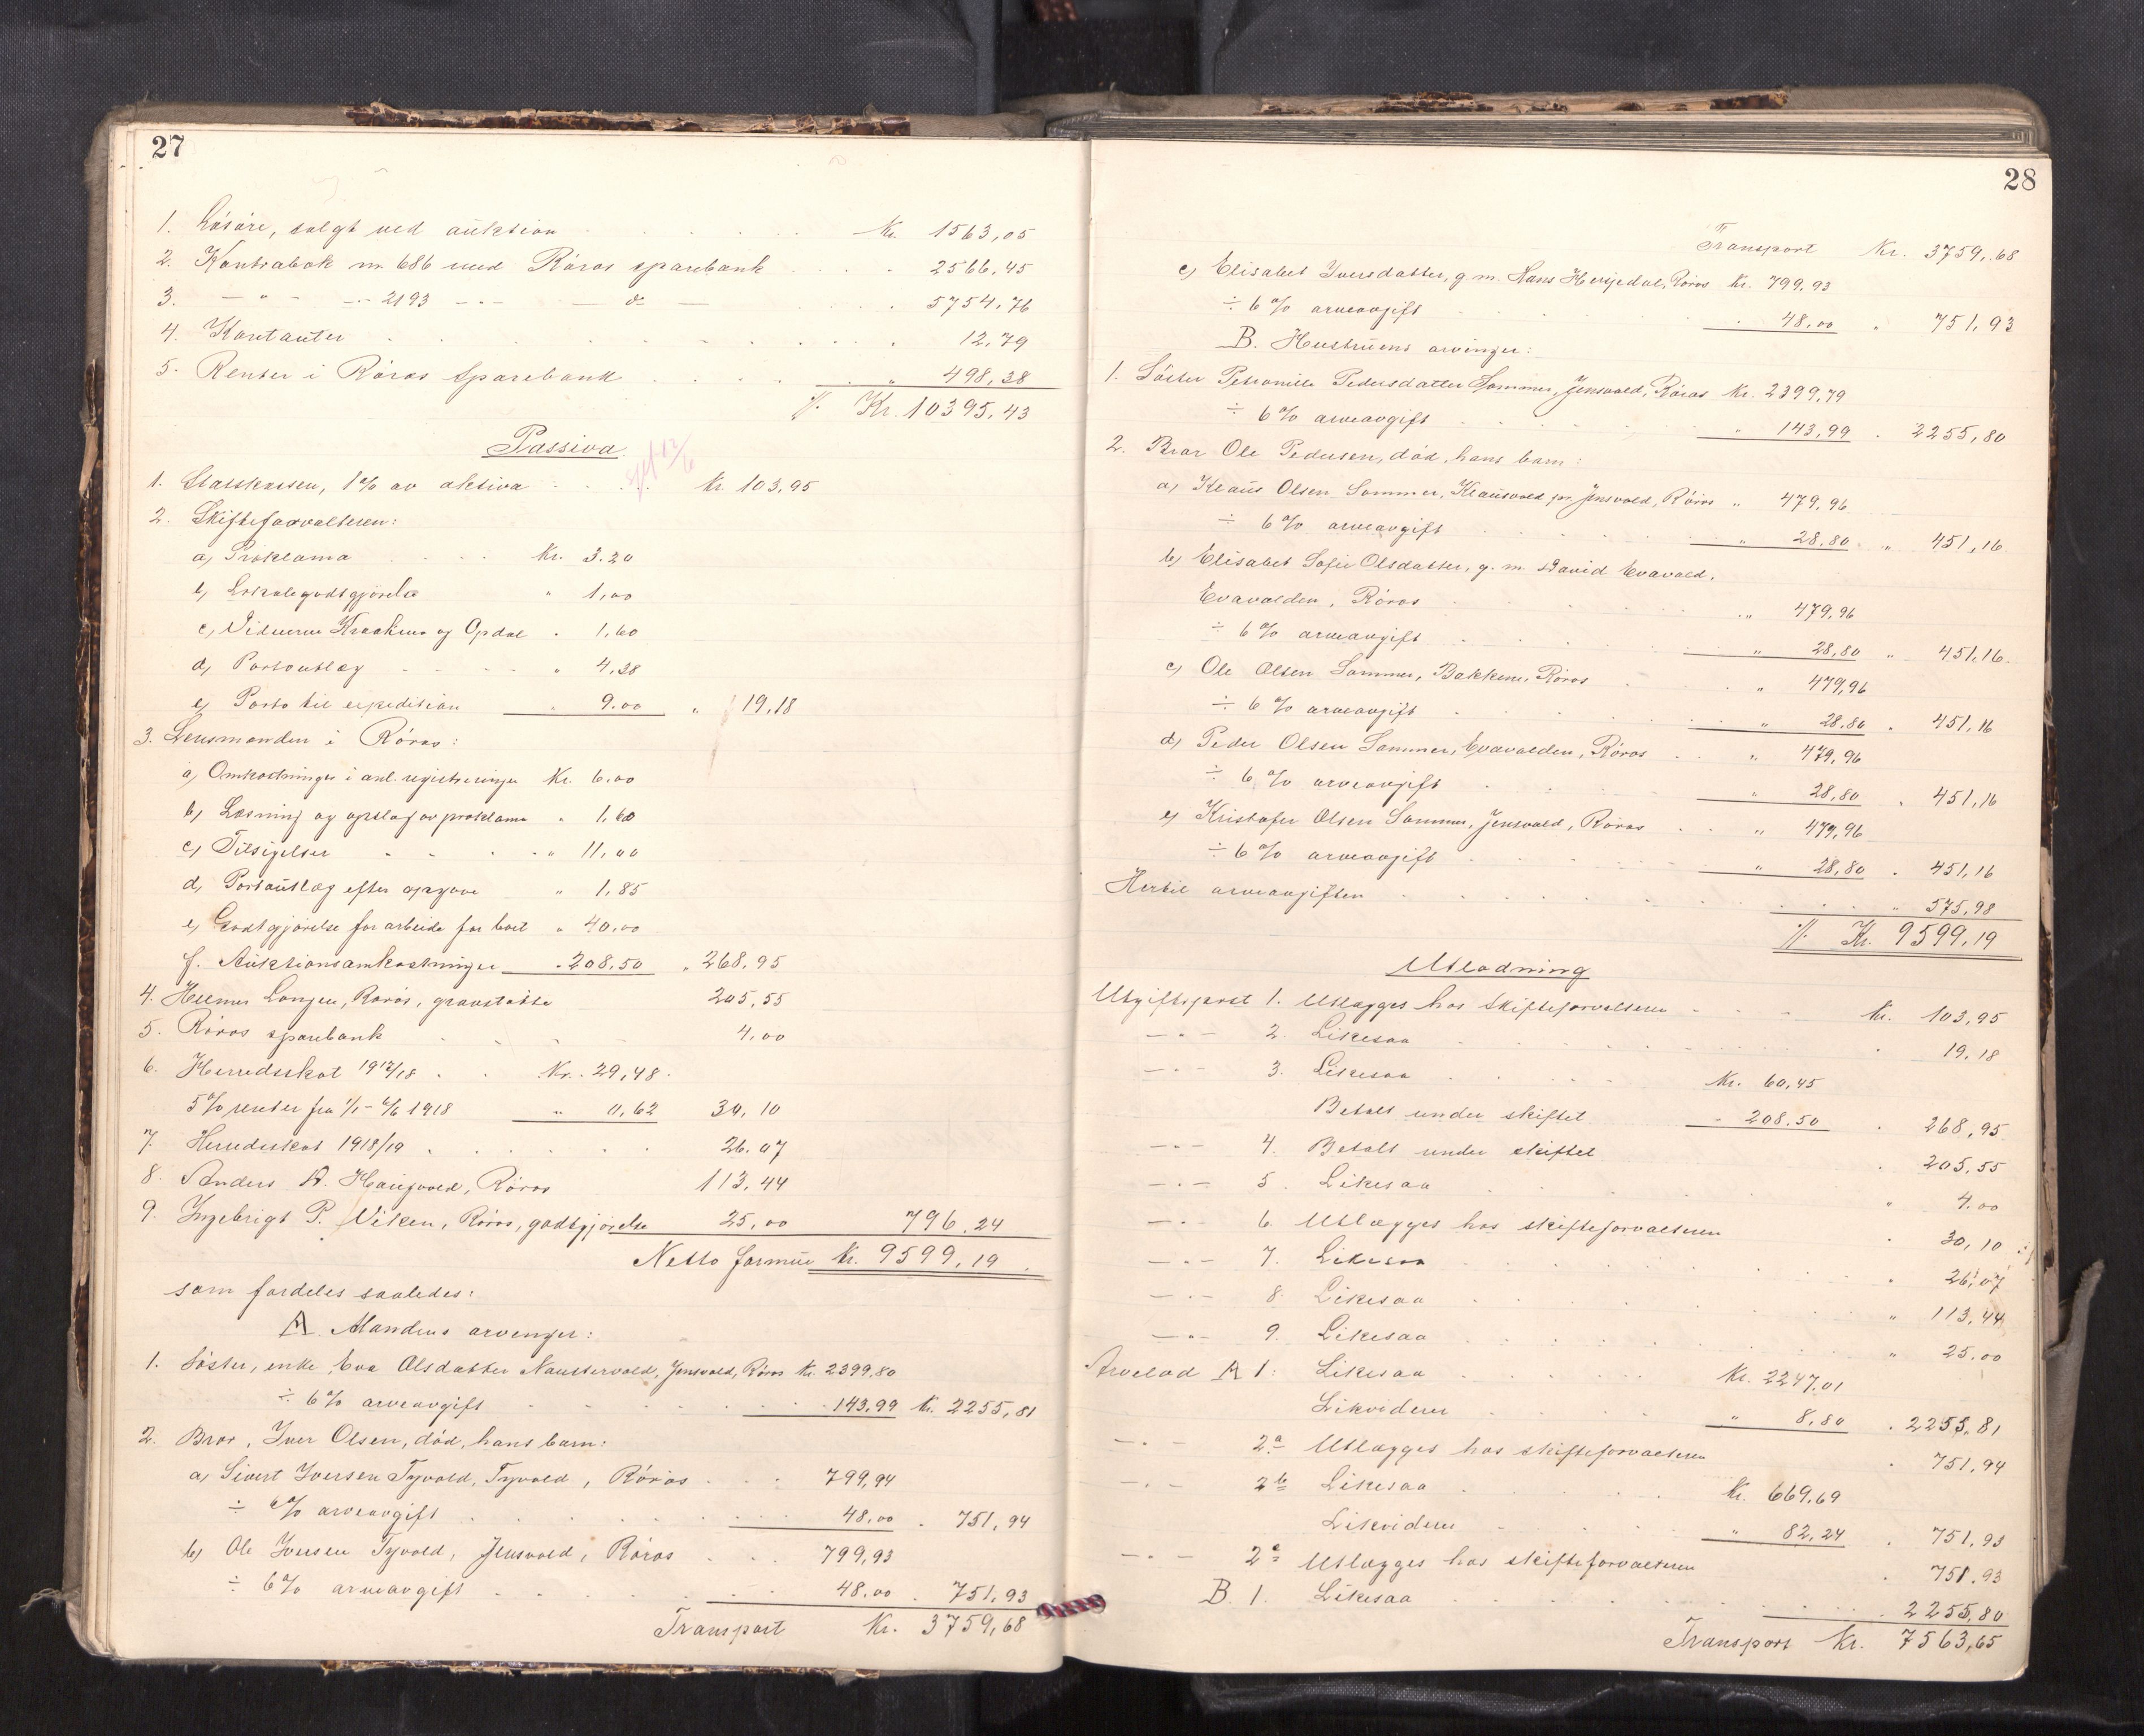 27
1. Løsøre, solgt ved auktion Kr. 1563,05
2. Kontrabok nr. 686 med Röros sparebank 2566,45
3. — " — — " — 2193 — " — — do — 5754,76
4. Kontanter 12,79
5. Renter i Röros Sparebank " 498,38
Kr. 10395,43
Passiva
1. Statskassen, 1% av aktiva Kr. 103,95
2. Skifteforvalteren:
a) Proklama Kr. 3.20
b) Lokalegodtgjörelse " 1,00
c) Vidnerne Kraakmo og Opdal " 1,60
d) Portoutlæg " 4,38
e) Porto til expedition " 9.00 " 19,18
3. Lensmanden i Röros:
a) Omkostninger i anl. registreringen Kr. 6.00
b) Læsning og opslag av proklama " 1,60
c) Tilsigelser " 11,00
d) Portoutlæg efter opgave " 1,85
e) Godtgjörelse for arbeide for boet " 40.00
f. Auktionsomkostninger " 208,50 " 268,95
4. Helmer Longen, Rorös, gravstötte 205,55
5. Röros sparebank 4,00
6. Herredsskat 1917/18 Kr. 29,48
5% renter fra 1/1 - 6/6 1918 " 0,62 30,10
7. Herredsskat 1918/19 26.07
8. Anders A. Haugvold, Röros 113,44
9. Ingebrigt P. Viken, Röros, godtgjörelse 25,00 796,24
Netto formue Kr. 9599,19
som fordeles saaledes:
A. Mandens arvinger:
1. Söster, enke Eva Olsdatter Naustervold, Jensvold, Röros Kr. 2399,80
÷ 6% arveavgift 143,99 Kr. 2255,81
2. Bror, Iver Olsen, död, hans barn:
a) Sivert Iversen Tyvold, Tyvold, Röros 799,94
÷ 6% arveavgift 48,00 " 751,94
b) Ole Iversen Tyvold, Jensvold, Röros 799,93
÷ 6% arveavgift 48.00 " 751,93
Transport Kr. 3759,68
28
Transport Kr. 3759,68
c) Elisabet Iversdatter, g. m. Hans Hersjedal, Röros Kr. 799,93
÷ 6% arveavgift 48,00 " 751,93
B. Hustruens arvinger:
1. Söster Petronille Pedersdatter Sommer, Jensvold, Röros Kr. 2399,79
÷ 6% arveavgift " 143,99 " 2255,80
2. Bror Ole Pedersen, död, hans barn:
a) Klaus Olsen Sommer, Klausvold pr. Jensvold, Röros " 479,96
÷ 6% arveavgift " 28,80 " 451,16
b) Elisabet Sofie Olsdatter, g. m. David Evavold,
Evavolden, Röros " 479,96
÷ 6% arveavgift " 28,80 " 451,16.
c) Ole Olsen Sommer, Bakkene, Röros " 479,96
÷ 6% arveavgift " 28.80 " 451,16
d) Peder Olsen Sommer, Evavolden, Röros " 479,96
÷ 6% arveavgift " 28,80 " 451,16
e) Kristofer Olsen Sommer, Jensvold, Röros " 479,96
÷ 6% arveavgift " 28,80 " 451,16
Hertil arveavgiften " 575,98
Kr. 9599,19
Utlodning
Utgiftspost 1. Utlægges hos skifteforvalteren Kr. 103,95
— " — 2. Likesaa " 19,18
— " — 3. Likesaa Kr. 60,45
Betalt under skiftet " 208.50 " 268,95
— " — 4. Betalt under skiftet " 205,55
— " — 5. Likesaa " 4.00
— " — 6. Utlægges hos skifteforvalteren " 30,10
— " — 7. Likesaa " 26,07
— " — 8. Likesaa " 113,44
— " — 9. Likesaa " 25.00
Arvelod A 1: Likesaa Kr. 2247,01
Likviderer " 8,80 " 2255,81
— " — 2a Utlægges hos skifteforvalteren " 751,94
— " — 2b Likesaa Kr. 669,69
Likviderer " 82,24 " 751,93
— " — 2c Utlægges hos skifteforvalteren " 751.93
B. 1. Likesaa " 2255,80
Transport Kr. 7563,65